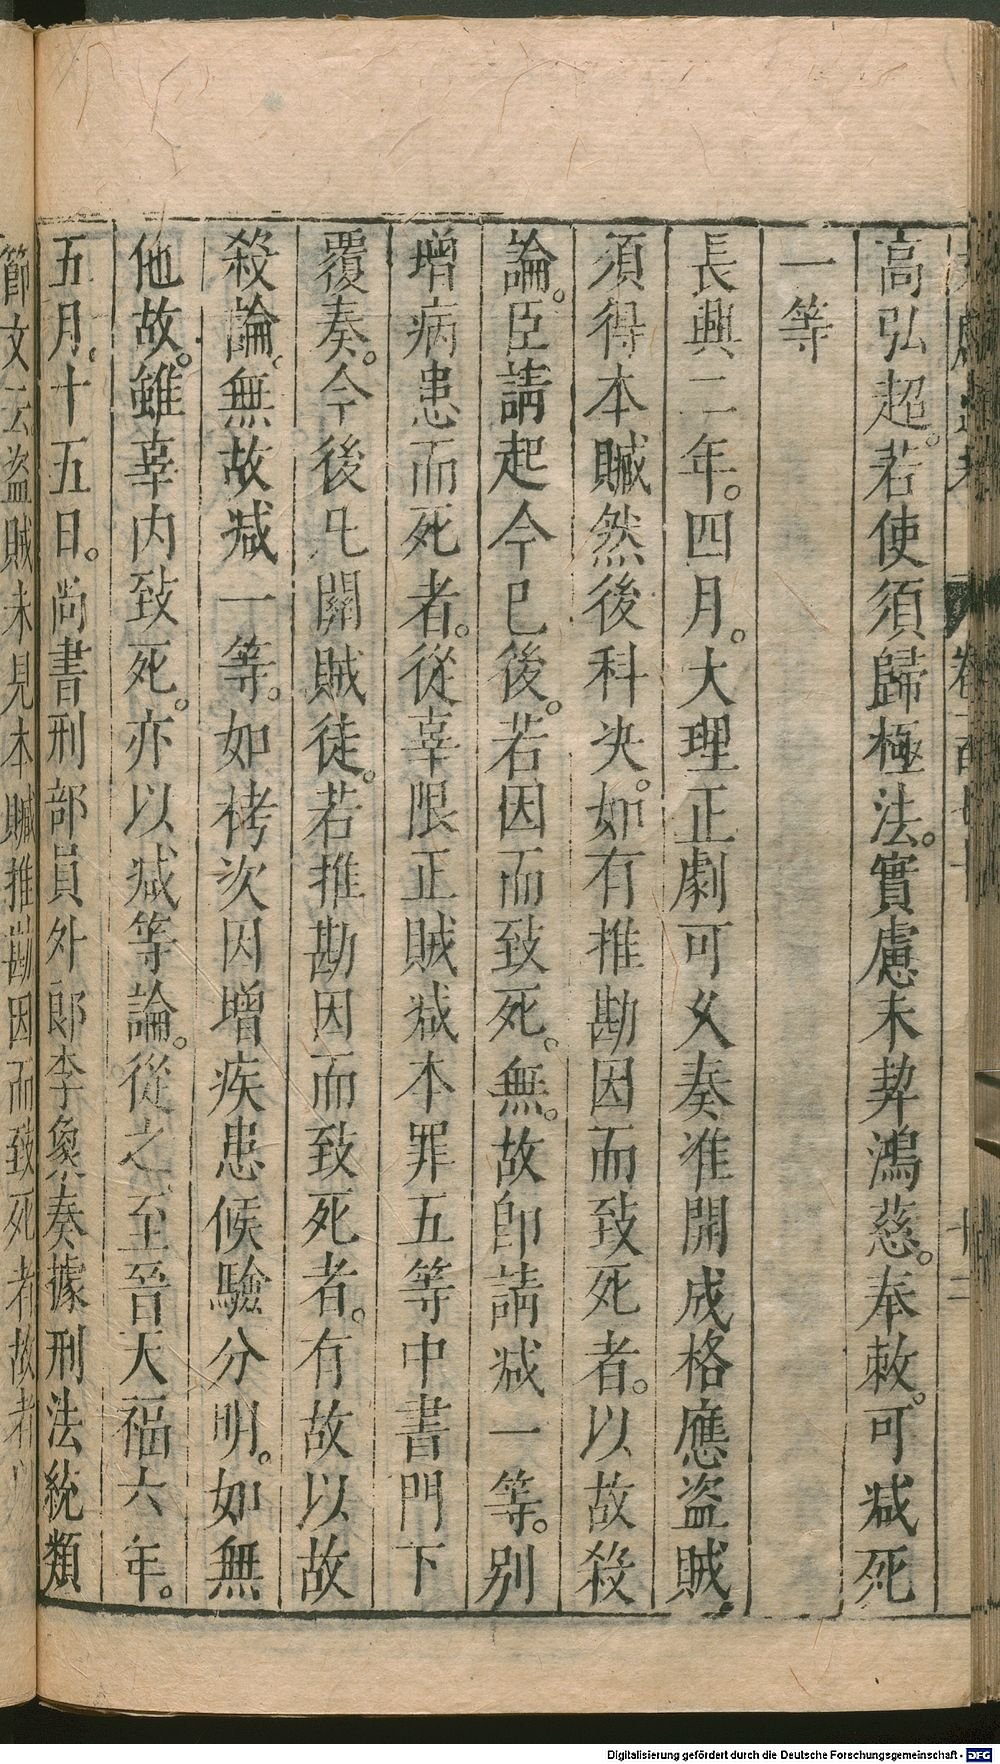 高弘超。若使須歸極法。實慮未契鴻慈。奉敕。可减死
一等
長興二年。四月。大理正劇可久奏准開成格應盜賊
須得本贓然後科决。如有推勘因而致死者。以故殺
論。臣請起今已後。若因而致死。無。故卽請减一等。别
增病患而死者。從辜限正賊减本罪五等中書門下
覆奏。今後凡關賊徒。若推勘因而致死者。有故以故
殺論。無故减一等。如栲次因增疾患候驗分明。如無
他故。雖辜内致死。亦以减等論。從之至晉天福六年。
五月。十五日。尚書刑部員外郎李象奏據刑法統類
節文云盜賊未見本贓推勘因而致死者故者
Digitalisierung gefördert durch die Deutsche Forschungsgemeinschaft - DFG